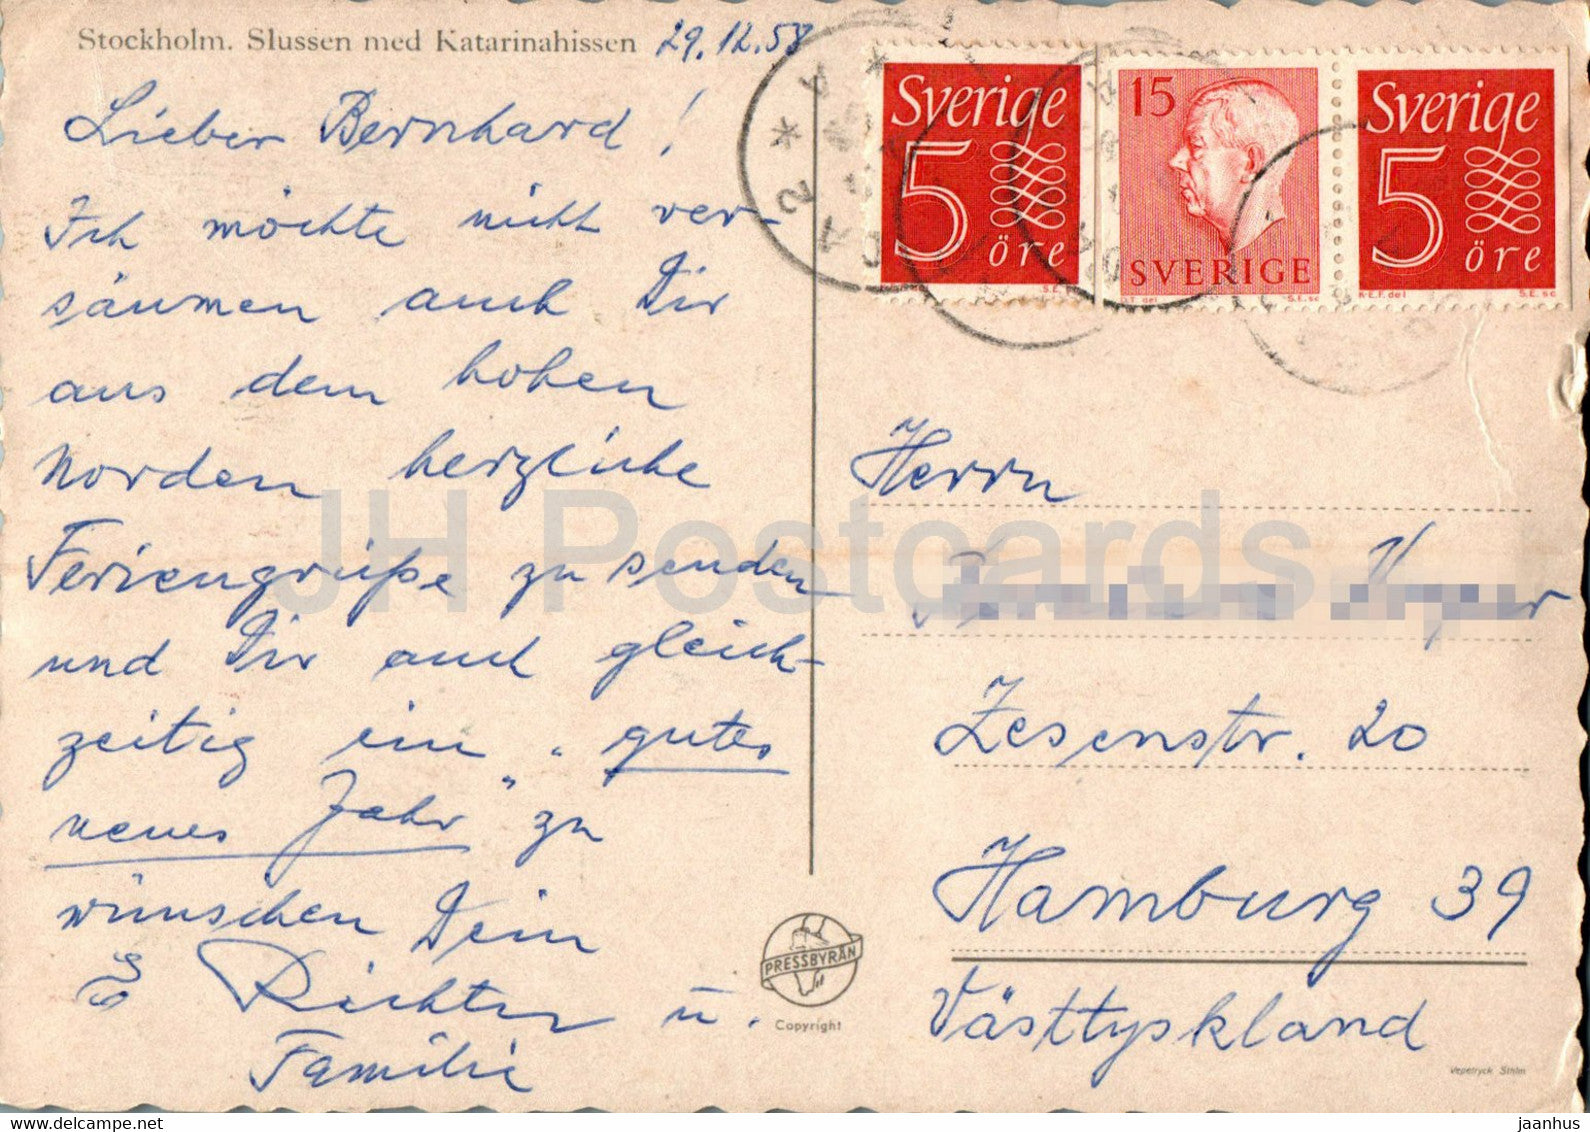 Stockholm. Slussen med Katarinahissen 29.12.58
Lieber Bernhard!
Ich möchte nicht ver-
säumen auch Dir
aus dem hohen
Norden herzliche
Feriengrüße zu senden
und Dir auch gleich-
zeitig ein „gutes
neues Jahr" zu
wünschen Dein
E Richter u.
Familie
Sverige
5
öre
15
SVERIGE
Sverige
5
öre
Herrn
Zesenstr. 20
Hamburg 39
Västtyskland
PRESSBYRÅN
Copyright
Vepetryck Sthlm
JH Postcards
www.delcampe.net
jaanhus